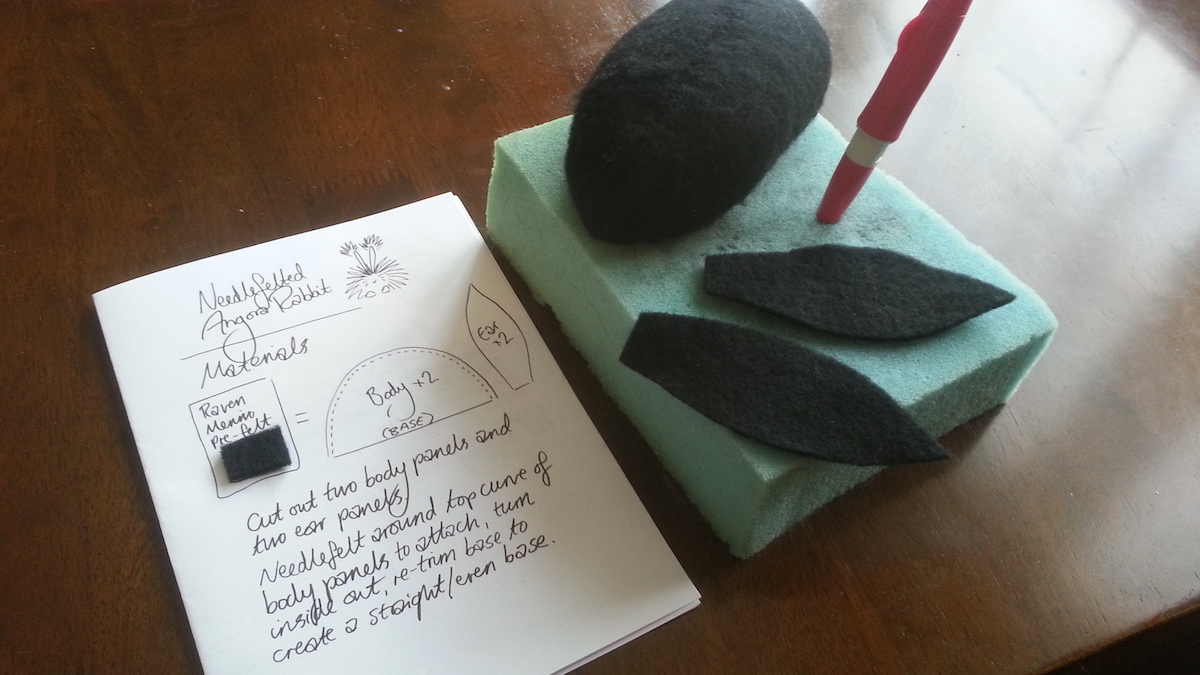 Needlefelted
Angora Rabbit
Materials
Raven
Merino
Pre-felt
=
Body x2
(BASE)
Ear
x2
Cut out two body panels and
two ear panels.
Needlefelt around top curve of
body panels to attach, turn
inside out, re-trim base to
create a straight/even base.